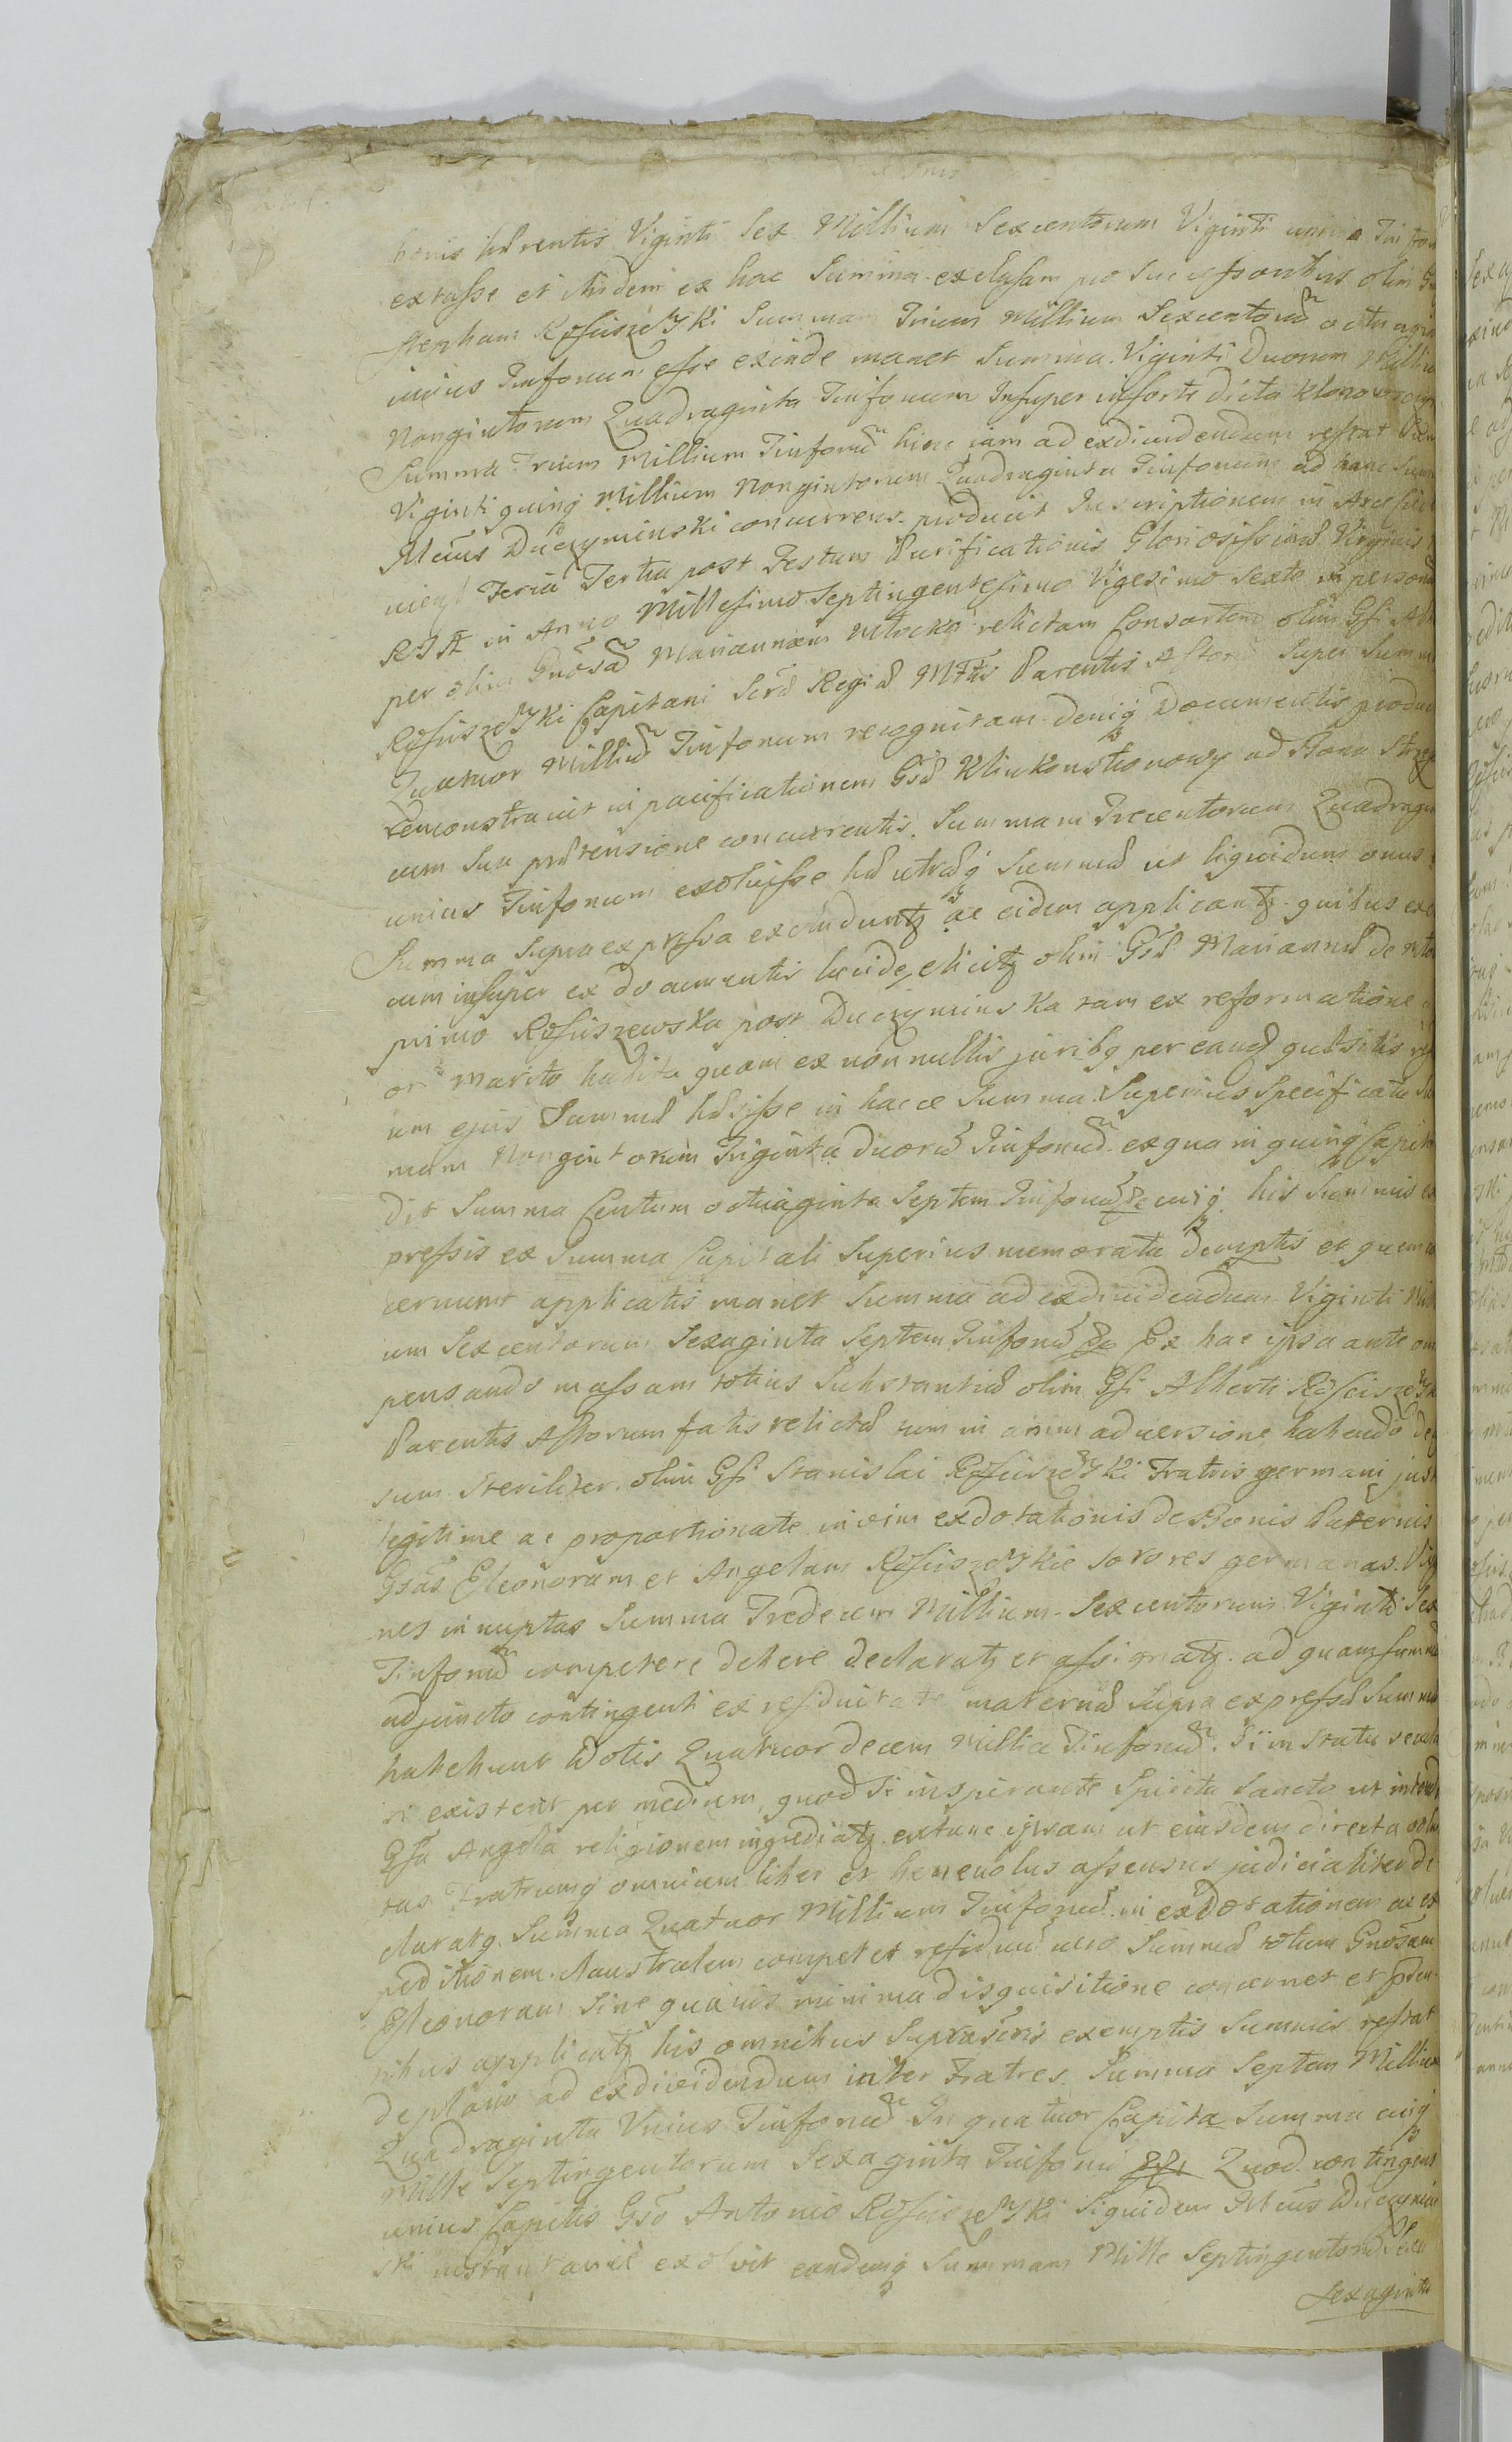 bonis hærentis Viginti Sex Millium Sexcentorum Viginti unius Tinfon
extasse et ibidem ex hac Summa exclusam pro Successoribus olim G
Stephani Rościszewski Summam Trium Millium Sexcentorũ octuagin
unius Tinfonum esse exinde manet Summa Viginti Duorum Milliu
Nongintorum Quadraginta Tinfonum Insuper in sorte dicta
Summa Trium Millium Tinfonũ hinc iam ad exdividendum restat Sum
Viginti quinq Millium Nongintorum Quadraginta Tinfonum ad hanc Sum
Mcus Duczyminski concurrens producit Inscriptionem in
Feria Tertia post Festum Purificationis Gloriosissimæ Virginis
in Anno Millesimo Septingentesimo Vigesimo Sexto in person
per olim Gnosã Mariannam relictam Consortem olim Gsi Alb
Rościszewski Capitani Seræ Regiæ Mttis Parentis Astorũ Super Summ
Quatuor Milliũ Tinfonum recognitam deniq Documentis produc
demonstravit in pacificationem Gsæ ad Bona
cum Sua prætensione concurrentis Summam Trecentorum Quadragin
unius Tinfonum exoluisse hæ utræq Summæ ut liquidum onus
Summa Supra expressa excluduntq ac eidem applicantq quibus ex
cum insuper ex documentis lucide elicitq olim Gsæ Mariannæ de
primo Rościszewska post Duczyminska tam ex reformatione
Marito habita quam ex non nullis juribq per eand quæsitis
um ejus Summæ hæsisse in hacce Summa Superius Specificata
mam Nongintorum Triginta duorũ Tinfonũ ex qua in quinq Capita
dit Summa Centum octuaginta Septem Tinfonũ cuiq his Summis ex
pressis ex Summa Capitali Superius memorata demptis et quem
cernunt applicatis manet Summa ad exdividendum Viginti Mil
um Sexcentorum Sexaginta Septem Tinfonũ Ex hac ipsa ante om
pensando massam totius Substantiæ olim Gsi Alberti Rościszewski
Parentis Astorum fatis relictæ tum in animadversione habendo de
sum steriliter olim Gsi Stanislai Rościszewski Fratris germani just
legitime ac proportionate in vim exdotationis de Bonis Paternis
Gsas Eleonoram et Angelam Rościszewskie sorores germanas Virgi
nes innuptas Summa Tredecem Millium Sexcentorum Viginti Sex
Tinfonũ competere debere declaratq et assignatq ad quam Summã
adjuncto contingenti ex residuitate maternæ Supra expressæ Summæ
habebunt Dotis Quatuordecem Millia Tinfonũ Si in statu secula
ri existent per medium, quod Si inspirante Spiritu Sancto ut intend
Gsa Angela religionem ingrediatq extunc ipsam ut eiusdem directa volu
tas Fratrumq omnium liber et benevolus assensus judicialiter de
claratq Summa Quatuor Millium Tinfonũ in exdotationem ac ex
peditionem Claustralem competet residuũ vero Summæ totum Gnosam
Eleonoram Sine quavis minima disquisitione concernet et
nibus applicatq his omnibus Suprascris exemptis Summis restat
deplano ad exdividendum inter Fratres Summa Septem Millium
Quadraginta Unius Tinfonũ In quatuor Capita Summa cuiq
mille Septingentorum Sexaginta Tinfonũ Quod contingens
unius Capitis Gso Antonio Rościszewski Siquidem Mcus Duczymin
ski exolvit eandemq Summam Mille Septingentorũ
Sexaginta